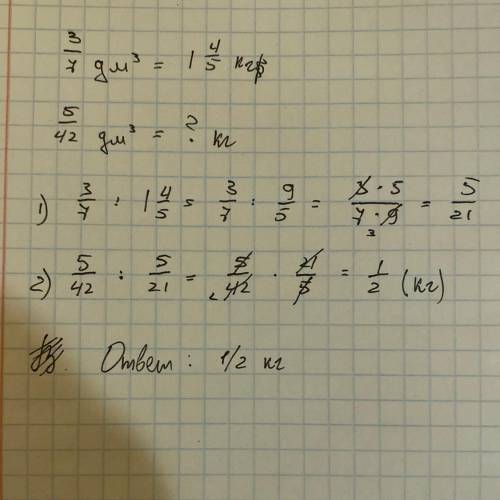 3/7 дм³ = 1 4/5 кг
5/42 дм³ = ? кг
1) 3/7 : 1 4/5 = 3/7 : 9/5 = 3·5/7·9 3 = 5/21
2) 5/42 : 5/21 = 5/42 2 · 21/5 = 1/2 (кг)
Ответ: 1/2 кг